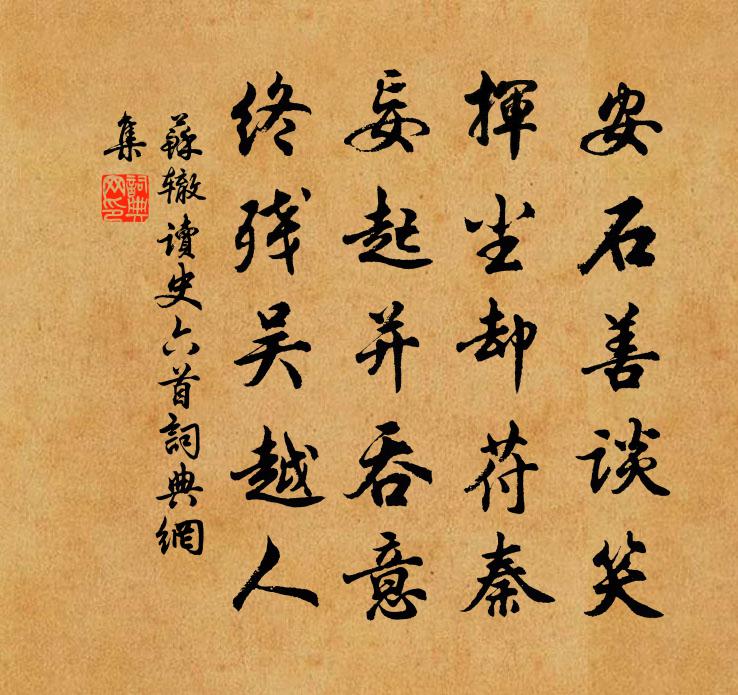 安石善谈笑
揮尘却苻秦
妄起并吞意
终残吴越人
蘇辙讀史六首詞典網
集
詞典
网印